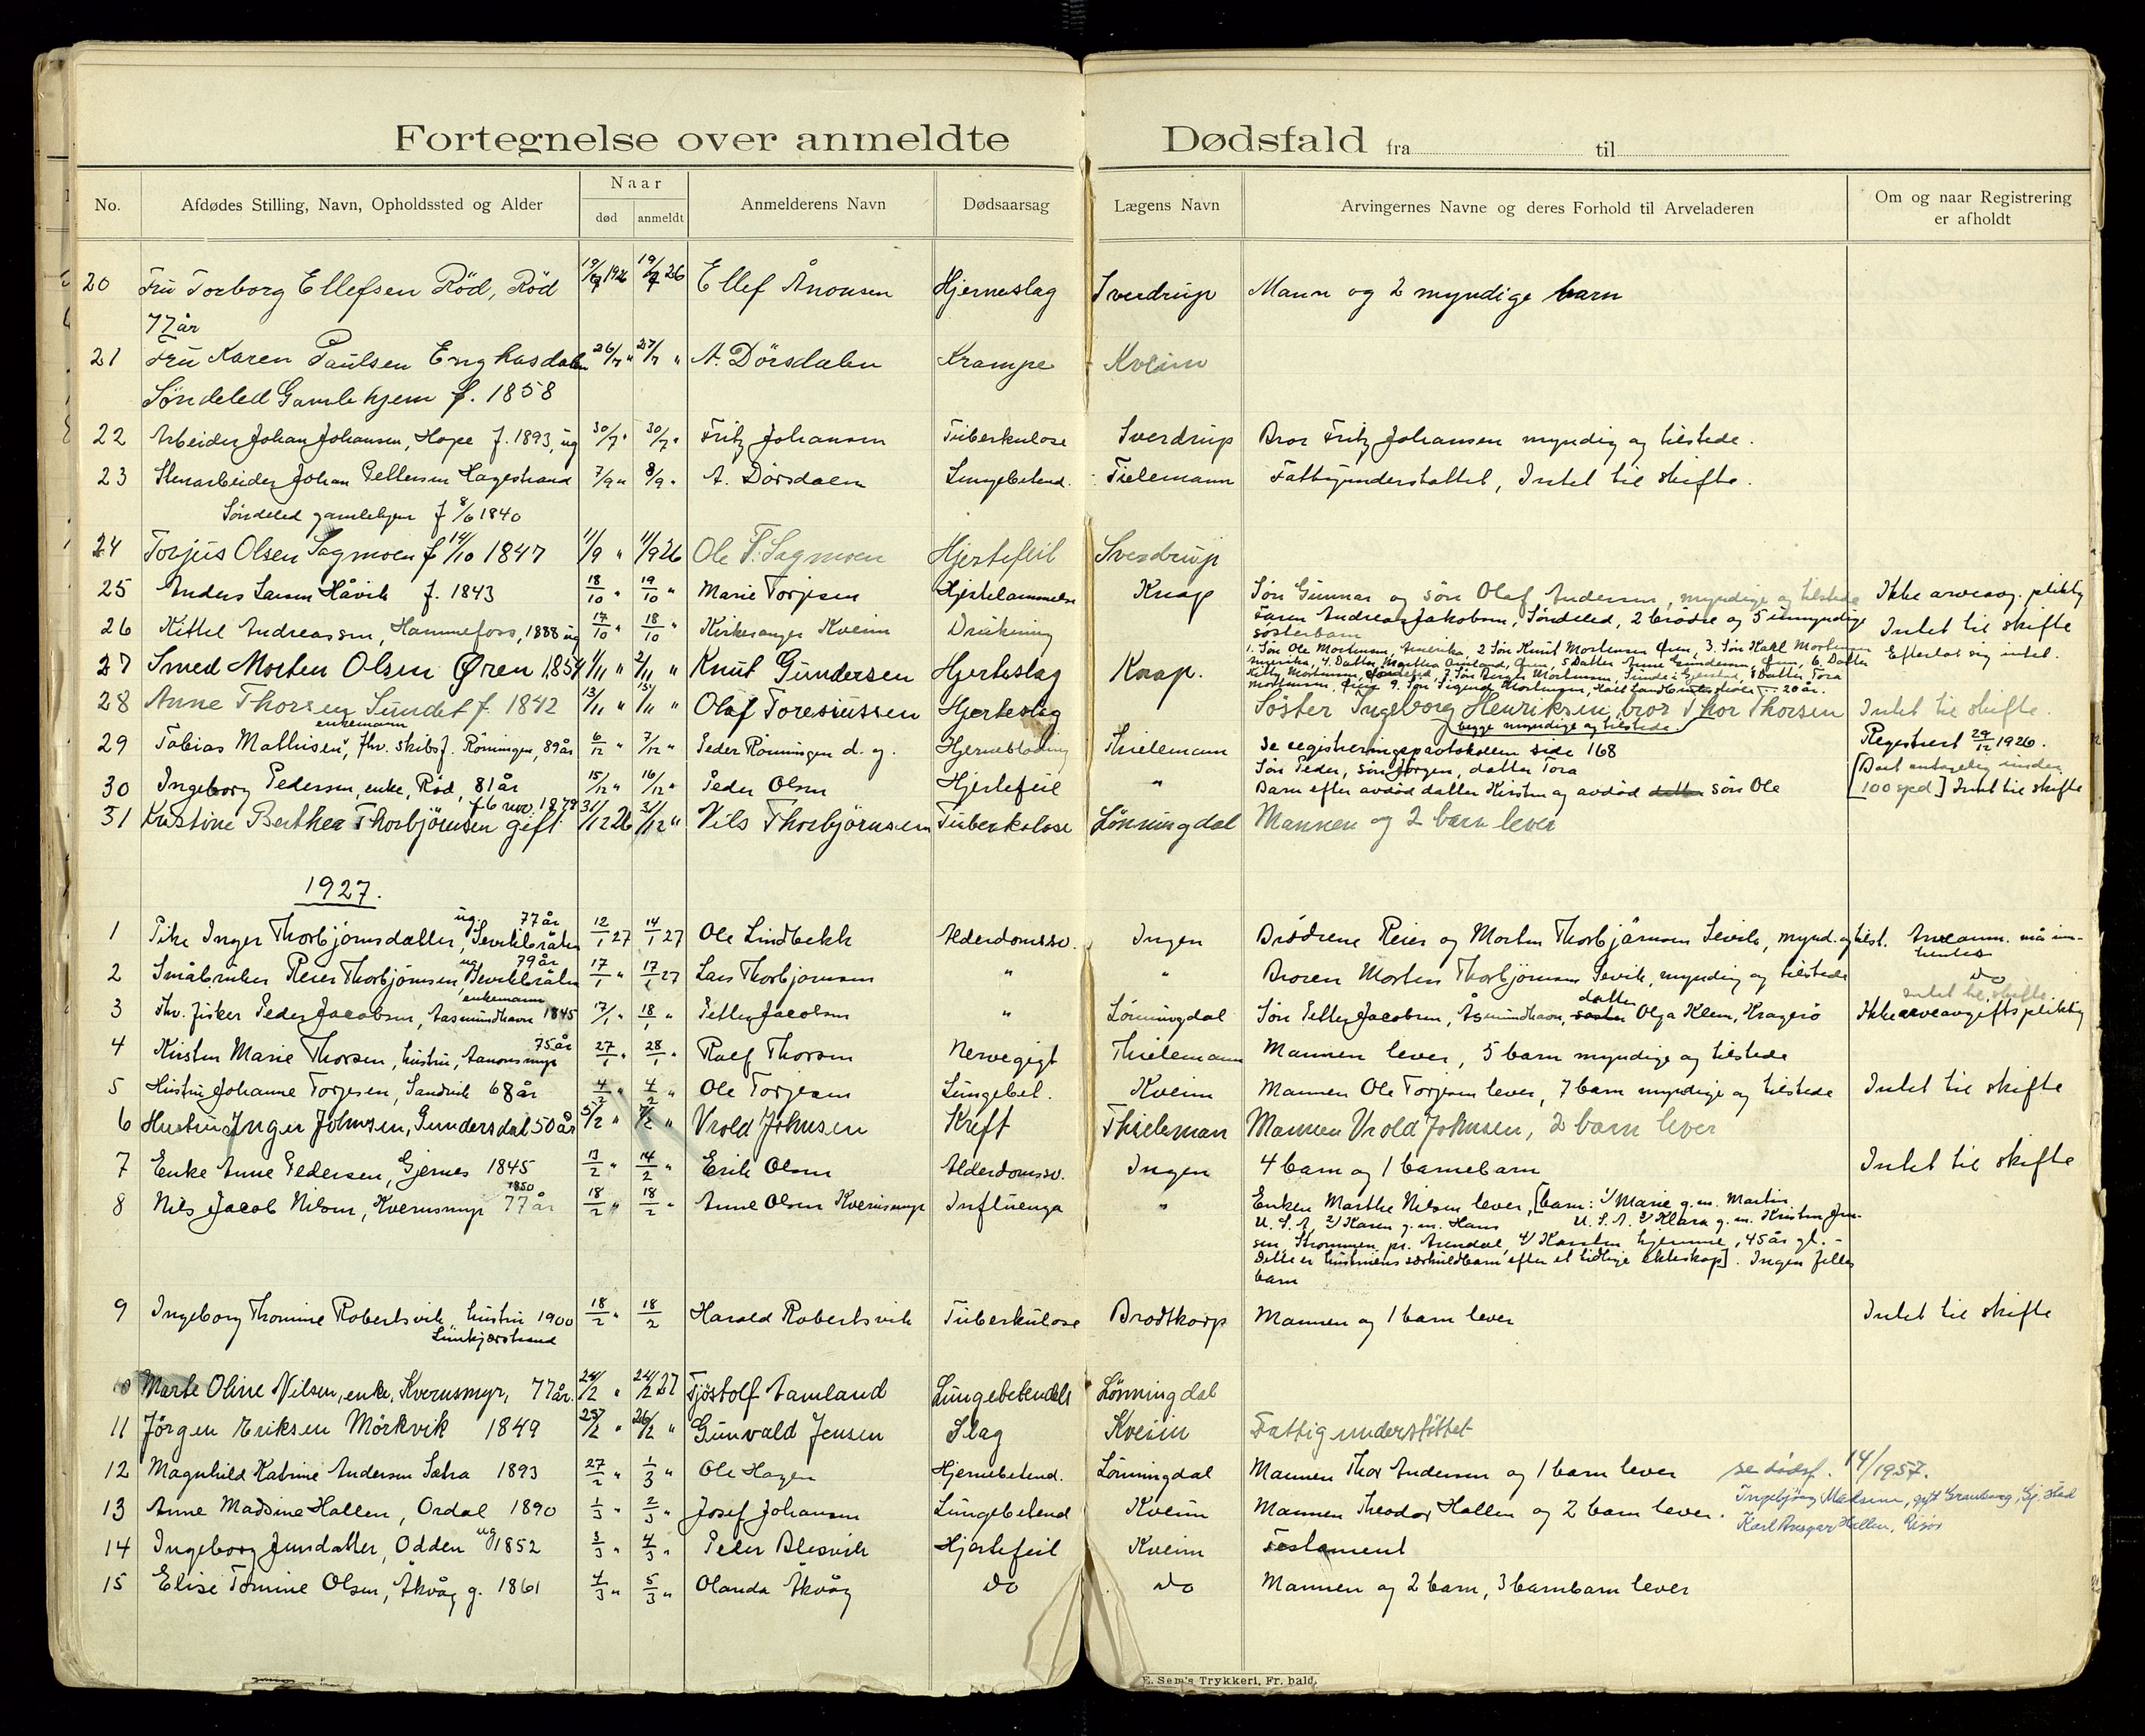 Fortegnelse over anmeldte Dødsfald fra til
No. Afdødes Stilling, Navn, Opholdssted og Alder Naar død anmeldt Anmelderens Navn Dødsaarsag Lægens Navn Arvingernes Navne og deres Forhold til Arveladeren Om og naar Registrering er afholdt
20 Fru Torborg Ellefsen Röd, Röd 19/7 1926 19/7 26 Ellef Ånonsen Hjerneslag Sverdrup Mann og 2 myndige barn
77 år
21 Fru Karen Paulsen Enghusdalen 26/7 " 27/7 " A. Dörsdalen Krampe Kveim
Söndeled Gamlehjem f. 1858
22 Arbeider Johan Johansen, Hope f. 1893, ug 30/7 " 30/7 " Fritz Johansen Tuberkulose Sverdrup Bror Fritz Johansen myndig og tilstede.
23 Stenarbeider Johan Pettersen Hagestrand 7/9 " 8/9 " A. Dörsdalen Lungebetend. Tielemann Fattigunderstöttet, Intet til skifte.
Söndeled gamlehjem f 8/6 1840
24 Torjus Olsen Sagmoen f 14/10 1847 11/9 " 11/9 26 Ole T. Sagmoen Hjertefeil Sverdrup
25 Anders Larsen Håvik f. 1843 18/10 " 19/10 " Marie Torjesen Hjertelammelse Knap Sön Gunnar og sön Olaf Andersen, myndige og tilstede Ikke arveavg. pliktig
26 Kittel Andreassen, Hammefoss, 1888 ug 17/10 " 18/10 " Kirkesanger Kveim Drukning Faren Andreas Jakobsen, Söndeled, 2 brödre og 5 umyndige Intet til skifte
sösterbarn
27 Smed Morten Olsen Øren 1854 1/11 " 2/11 " Knut Gundersen Hjerteslag Knap. 1. Sön Ole Mortensen, Amerika, 2 Sön Knut Mortensen Øren, 3. Sön Karl Mortensen Efterlot sig intet.
Amerika, 4. Datter Martha Omland, Øren, 5 Datter Anne Gundersen, Øren, 6. Datter
Kitty Mortensen, Söndeled, 7. Sön Mortensen, Sunde i Gjerstad, 8 Datter Tora
Mortensen, Øren 9. Sön Sigurd Mortensen, 20 år.
28 Anne Thorsen Sundet f. 1842 13/11 " 15/11 " Olaf Toresiussen Hjerteslag Söster Ingeborg Henriksen, bror Thor Thorsen Intet til skifte.
begge myndige og tilstede
29 Tobias Mathisen, enkemann fhv. skibsf. Röningen, 89 år 6/12 " 7/12 " Peder Rönningen d. y. Hjerneblödning Thielemann Se registreringsprotokollen side 168 Registrert 29/12 1926.
Sön Peder, sön Jörgen, datter Tora
30 Ingeborg Pedersen, enke, Röd, 81 år 15/12 " 16/12 " Peder Olsen Hjertefeil " Barn efter avdöd datter Kirsten og avdöd datter sön Ole [Boet antagelig under 100 sped] Intet til skifte
31 Kristine Berthea Thorbjörnsen gift f. 6 nov. 1878 31/12 26 31/12 " Nils Thorbjörnsen Tuberkolose Lönningdal Mannen og 2 barn lever
1927.
1 Pike Inger Thorbjörnsdatter, ug. 77 år 12/1 27 14/1 27 Ole Lindbekk Alderdomssv. Ingen Brödrene Reier og Morten Thorbjörnsen Sevik, mynd. og tilst. må innhentes
2 Småbruker Reier Thorbjörnsen, ug 79 år 17/1 " 17/1 27 Lars Thorbjörnsen " " Broren Morten Thorbjörnsen Sevik, myndig og tilstede do
3 Fhv. fisker Peder Jacobsen, enkemann Aasmundhavn 1845 17/1 " 18/1 " Petter Jacobsen " Lönningdal Sön Petter Jacobsen, Åsmundhavn, söster datter Olga Klem, Kragerö Intet til skifte Ikke arveavgiftspliktig
4 Kirsten Marie Thorsen, hustru, Aanonsmyr 75 år 27/1 " 28/1 " Roef Thorsen Nervegigt Thielemann Mannen lever, 5 barn myndige og tilstede
5 Hustru Johanne Torjesen, Sandvik 68 år 4/2 " 4/2 " Ole Torjesen Lungebet. Kveim Mannen Ole Torjesen lever, 7 barn myndige og tilstede Intet til skifte
6 Hustru Inger Johnsen, Gundersdal 50 år 5/2 " 7/2 " Vrold Johnsen Kreft Thieleman Mannen Vrold Johnsen, 2 barn lever
7 Enke Anne Pedersen, Gjernes 1845 13/2 " 14/2 " Erik Olsen Alderdomssv. Ingen 4 barn og 1 barnebarn Intet til skifte
8 Nils Jacob Nilsen, Kvernsmyr 1850 77 år 18/2 " 18/2 " Anne Olsen Kvernsmyr Influenza " Enken Marthe Nilsen lever, [barn: 1/ Marie g. m. Martin
U. S. A. 2/ Karen g. m. Hans U. S. A. 3/ Klara g. m. Kristen Jen-
sen, Strommen pr. Arendal, 4/ Karsten hjemme, 45 år gl. -
Dette er hustruens særkuldbarn efter et tidlige ekteskap]. Ingen felles
barn
9 Ingeborg Thomine Robertsvik, hustru 1900 18/2 " 18/2 Harald Robertsvik Tuberkulose Brodtkorp Mannen og 1 barn lever Intet til skifte
10 Marte Oline Nilsen, enke, Kvernsmyr, 77 år. 24/2 " 24/2 27 Tjöstolf Aamland Lungebetendels Lönningdal
11 Jörgen Eriksen Mörkvik 1849 25/2 " 26/2 " Gunvald Jensen Slag Kveim Fattigunderstöttet
12 Magnhild Katrine Andersen Sætra 1893 27/2 " 1/3 " Ole Hagen Hjernebetend. Lönningdal Mannen Thor Andersen og 1 barn lever se dödsf. 14/1957.
13 Anne Madsine Hallen, Ordal 1890 1/3 " 2/3 " Josef Johansen Lungebetend Kveim Mannen Theodor Hallen og 2 barn lever. Ingebjörg Madsine, gift
Karl Ansgar Hallen, Risör
14 Ingeborg Jensdatter, Odden ug 1852 3/3 " 4/3 " Peter Blesvik Hjertefeil Kveim Testament
15 Elise Tomine Olsen, Åkvåg g. 1861 4/3 " 5/3 " Olanda Åkvåg do do Mannen og 2 barn, 3 barnbarn lever
E. Sem's Trykkeri, Fr. hald.